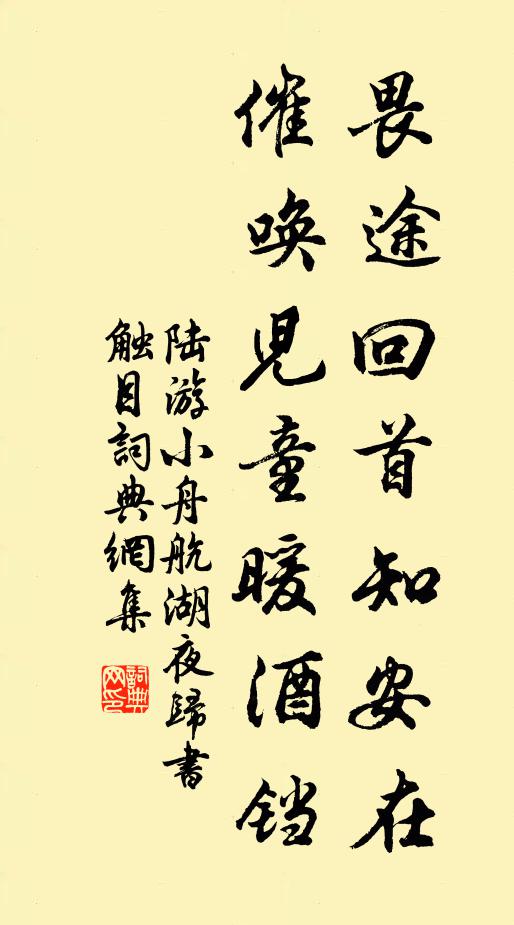 畏途回首知安在
催唤兒童暖酒铛
陆游小舟航湖夜歸書
触目詞典網集
詞典网印